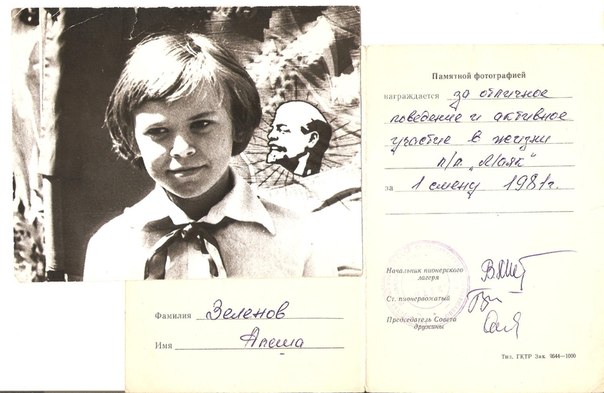 Памятной фотографией
награждается за отличное
поведение и активное
участие в жизни
п/л "Маяк"
за 1 смену 1981г.
Начальник пионерского
лагеря
Ст. пионервожатый
Председатель Совета
дружины
Тип. ГКТР Зак 3644—1000
Фамилия Зеленов
Имя Алеша